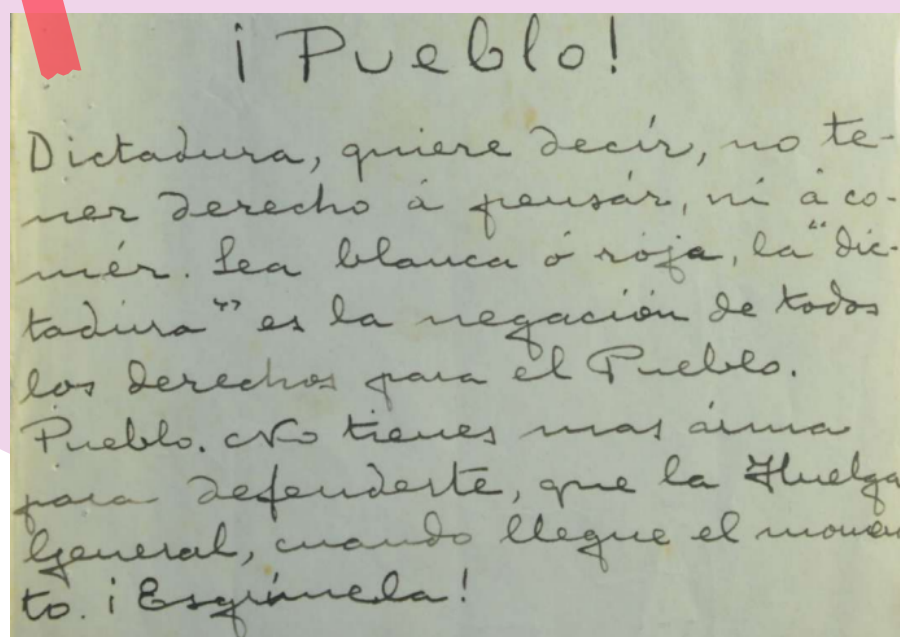 ¡Pueblo!
Dictadura, quiere decír, no te-
ner derecho á pensár, ni á co-
mér. Sea blanca ó roja, la "dic-
tadura" es la negación de todos
los derechos para el Pueblo.
Pueblo. No tienes mas arma
para defenderte, que la Huelga
General, cuando llegue el momen
to. ¡Esgrímela!